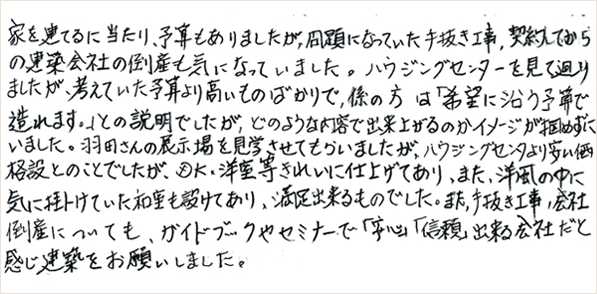 家を建てるに当たり、予算もありましたが、問題になっていた手抜き工事、契約してから
の建築会社の倒産も気になっていました。ハウジングセンターを見て廻り
ましたが、考えていた予算より高いものばかりで、係の方は「希望に沿う予算で
造れます。」との説明でしたが、どのような内容で出来上がるのかイメージが掴めずに
いました。羽田さんの展示場を見学させてもらいましたが、ハウジングセンタより安い価
格設とのことでしたが、DK・洋室等きれいに仕上げてあり、また、洋風の中に
気に掛けていた和室も設けてあり、満足出来るものでした。また、手抜き工事、会社
倒産についても、ガイドブックやセミナーで「安心」「信頼」出来る会社だと
感じ建築をお願いしました。